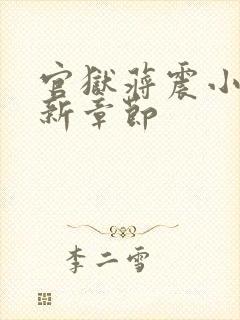 官獄蒋震小
新章節
李二雪